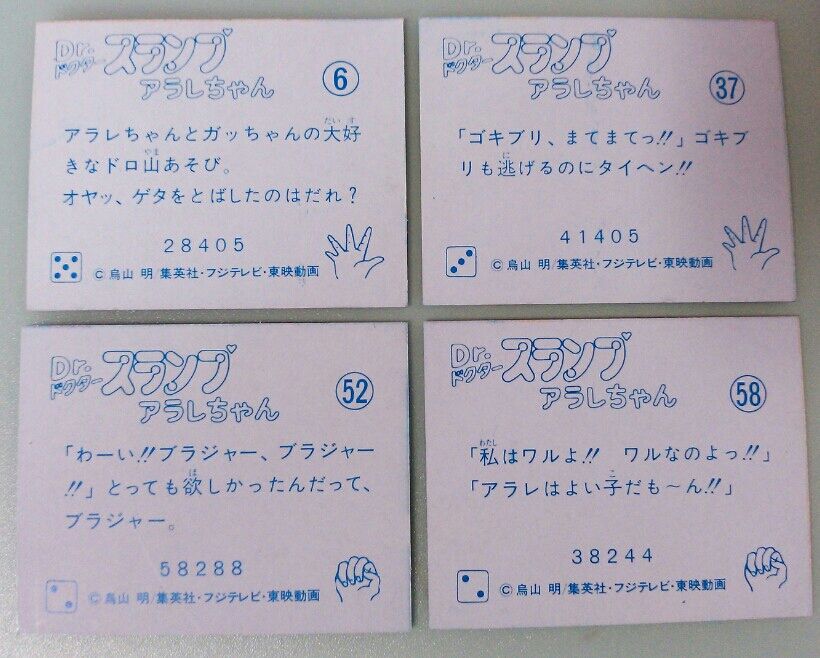 Dr.スランプ
ドクター
アラレちゃん
6
アラレちゃんとガッちゃんの大好
だいす
きなドロ山あそび。
やま
オヤッ、ゲタをとばしたのはだれ？
28405
©鳥山 明/集英社・フジテレビ・東映動画
Dr.スランプ
ドクター
アラレちゃん
37
「ゴキブリ、まてまてっ!!」ゴキブ
リも逃げるのにタイヘン!!
に
41405
©鳥山 明/集英社・フジテレビ・東映動画
Dr.スランプ
ドクター
アラレちゃん
52
「わーい!!ブラジャー、ブラジャー
!!」とっても欲しかったんだって、
ほ
ブラジャー。
58288
©鳥山 明/集英社・フジテレビ・東映動画
Dr.スランプ
ドクター
アラレちゃん
58
「私はワルよ!!　ワルなのよっ!!」
わたし
「アラレはよい子だも〜ん!!」
こ
38244
©鳥山 明/集英社・フジテレビ・東映動画